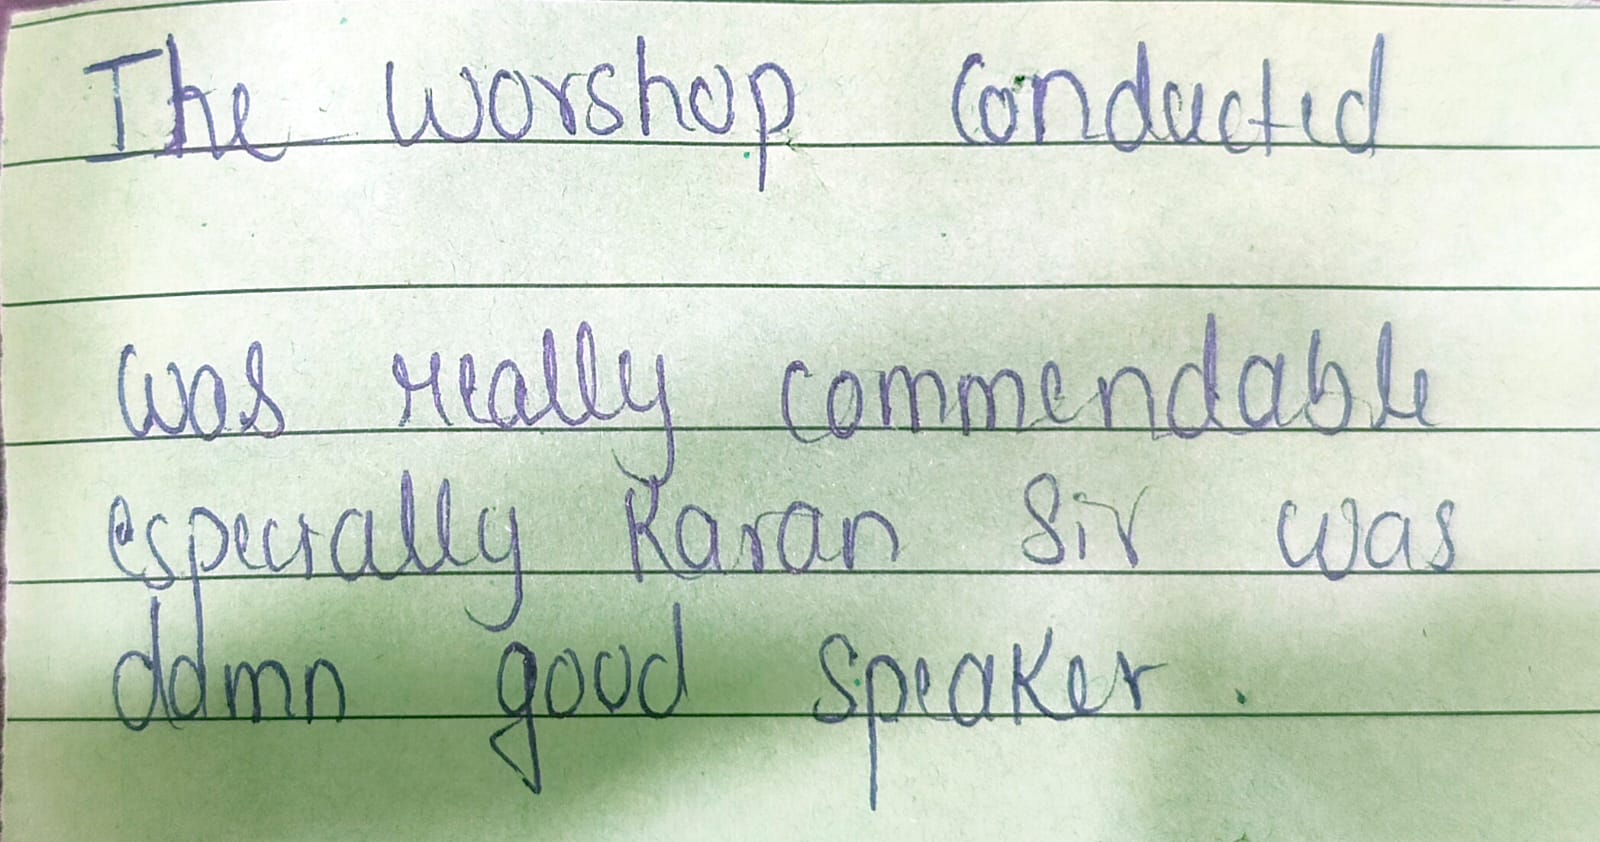 The worshop conducted
was really commendable
especially Karan Sir was
ddmn good speaker.